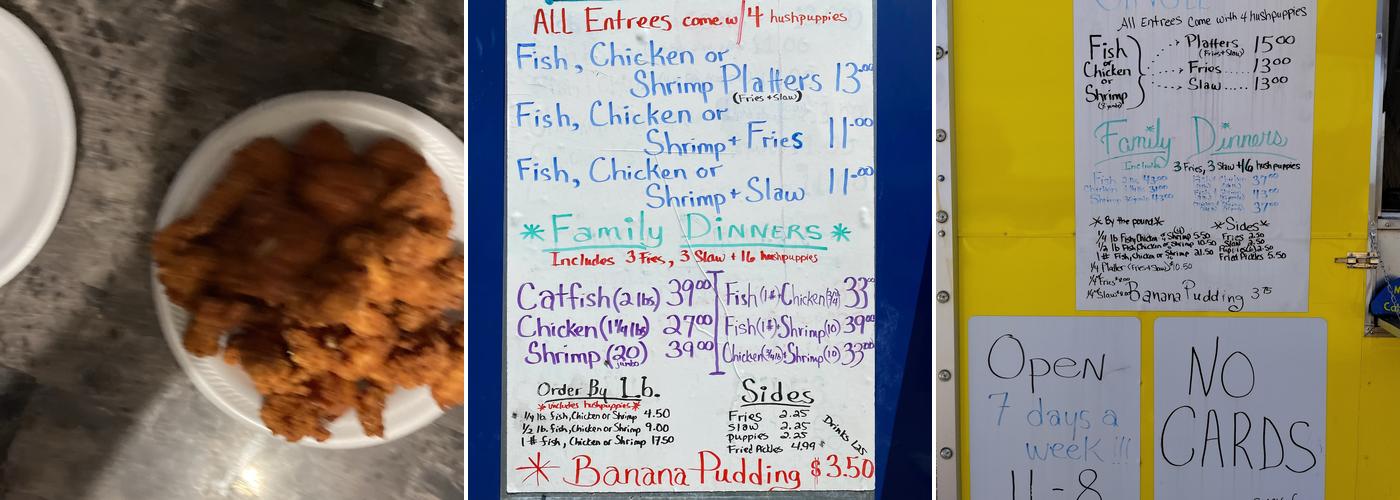 ALL Entrees come w/ 4 hushpuppies
Fish, Chicken or
Shrimp Platters 13.00
(Fries + Slaw)
Fish, Chicken or
Shrimp + Fries 11.00
Fish, Chicken or
Shrimp + Slaw 11.00
* Family Dinners *
Includes 3 Fries, 3 Slaw + 16 hushpuppies
Catfish (2 lbs) 39.00
Chicken (1 1/4 lbs) 27.00
Shrimp (20) 39.00
jumbo
Fish (1#) + Chicken (3/4) 33.00
Fish (1#) + Shrimp (10) 39.00
Chicken (3/4 lb) + Shrimp (10) 33.00
Order By Lb.
* includes hushpuppies *
1/4 lb. fish, Chicken or Shrimp 4.50
1/2 lb. fish, Chicken or Shrimp 9.00
1 # fish, Chicken or Shrimp 17.50
Sides
Fries 2.25
Slaw 2.25
puppies 2.25
Fried Pickles 4.99
Drinks 1.25
* Banana Pudding $3.50
All Entrees come with 4 hushpuppies
Fish
or
Chicken
or
Shrimp
Platters 15.00
(Fries + Slaw)
Fries ..... 13.00
Slaw .... 13.00
* Family Dinners
Includes 3 Fries, 3 Slaw + 16 hushpuppies
* By the pound *
1/4 lb Fish, Chicken or Shrimp 5.50
1/2 lb Fish, Chicken or Shrimp 10.50
1 # Fish, Chicken or Shrimp 21.50
1/4 Platter (Fries + Slaw) 10.50
* Sides *
Fries 2.50
Slaw 2.50
2.50
Fried Pickles 5.50
Banana Pudding 3.75
Open
7 days a
week!!!
11-8
NO
CARDS